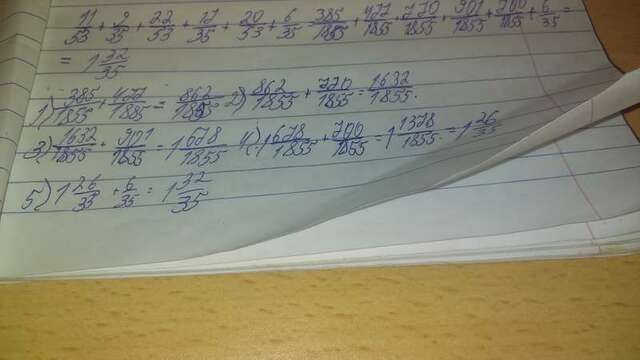 11/53 + 9/35 + 22/53 + 17/35 + 20/53 + 6/35 = 385/1855 + 477/1855 + 770/1855 + 901/1855 + 700/1855 + 6/35 =
= 1 32/35
1) 385/1855 + 477/1855 = 862/1855 2) 862/1855 + 770/1855 = 1632/1855.
3) 1632/1855 + 901/1855 = 1 678/1855 4) 1 678/1855 + 700/1855 = 1 1378/1855 = 1 26/35
5) 1 26/35 + 6/35 = 1 32/35